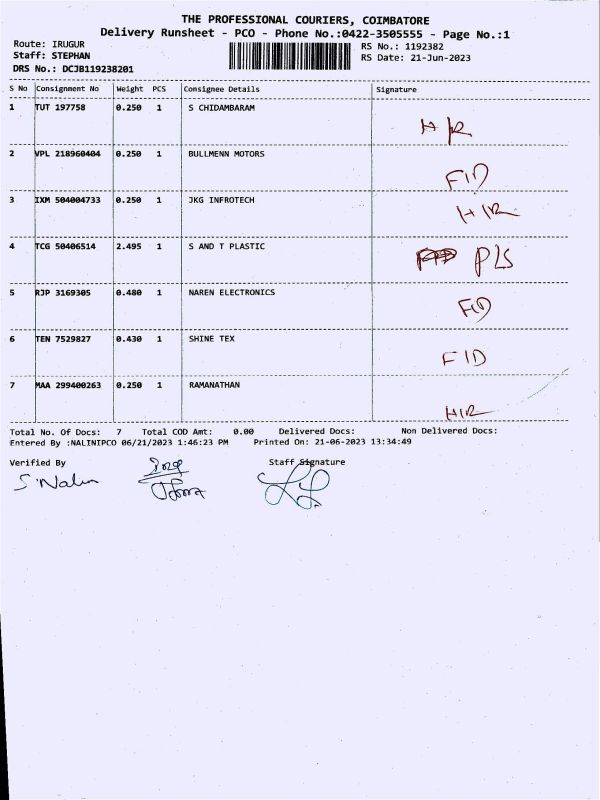 THE PROFESSIONAL COURIERS, COIMBATORE
Delivery Runsheet - PCO - Phone No.:0422-3505555 - Page No.:1
Route: IRUGUR RS No.: 1192382
Staff: STEPHAN RS Date: 21-Jun-2023
DRS No.: DCJB119238201
S No Consignment No Weight PCS Consignee Details Signature
1 TUT 197758 0.250 1 S CHIDAMBARAM
H/R
2 VPL 218960404 0.250 1 BULLMENN MOTORS
FID
3 IXM 504004733 0.250 1 JKG INFROTECH
H/R
4 TCG 50406514 2.495 1 S AND T PLASTIC PLS
5 RJP 3169305 0.480 1 NAREN ELECTRONICS
FID
6 TEN 7529827 0.430 1 SHINE TEX
FID
7 MAA 299400263 0.250 1 RAMANATHAN
H/R
Total No. Of Docs: 7 Total COD Amt: 0.00 Delivered Docs: Non Delivered Docs:
Entered By :NALINIPCO 06/21/2023 1:46:23 PM Printed On: 21-06-2023 13:34:49
Verified By Staff Signature
S.Nalin